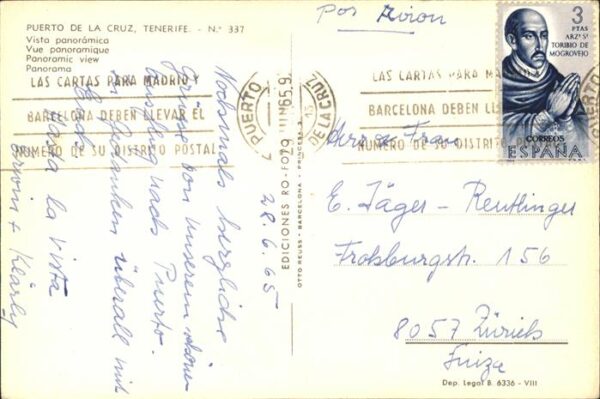 PUERTO DE LA CRUZ, TENERIFE. - N.º 337
Vista panorámica
Vue panoramique
Panoramic view
Panorama
LAS CARTAS PARA MADRID Y
BARCELONA DEBEN LLEVAR EL
NUMERO DE SU DISTRITO POSTAL
PUERTO
DE LA CRUZ
29 JUN 65
28.6.65
Nochmals herzliche
Grüsse von unserem schönen
nach Puerto.
In Gedanken überall mit
Euch.
Hasta la vista
EDICIONES RO-FOTO
OTTO REUSS - BARCELONA - PRINCESA
Por Avion
3
PTAS
ARZ. Sº
TORIBIO DE
MOGROVEJO
CORREOS
ESPAÑA
LAS CARTAS PARA MADRID
BARCELONA DEBEN LLE
NUMERO DE SU DISTRITO
PUERTO
Herrn + Frau
E. Jäger - Reutlinger
Frohburgstr. 156
8057 Zürich
Suiza
Dep. Legal B. 6336 - VIII